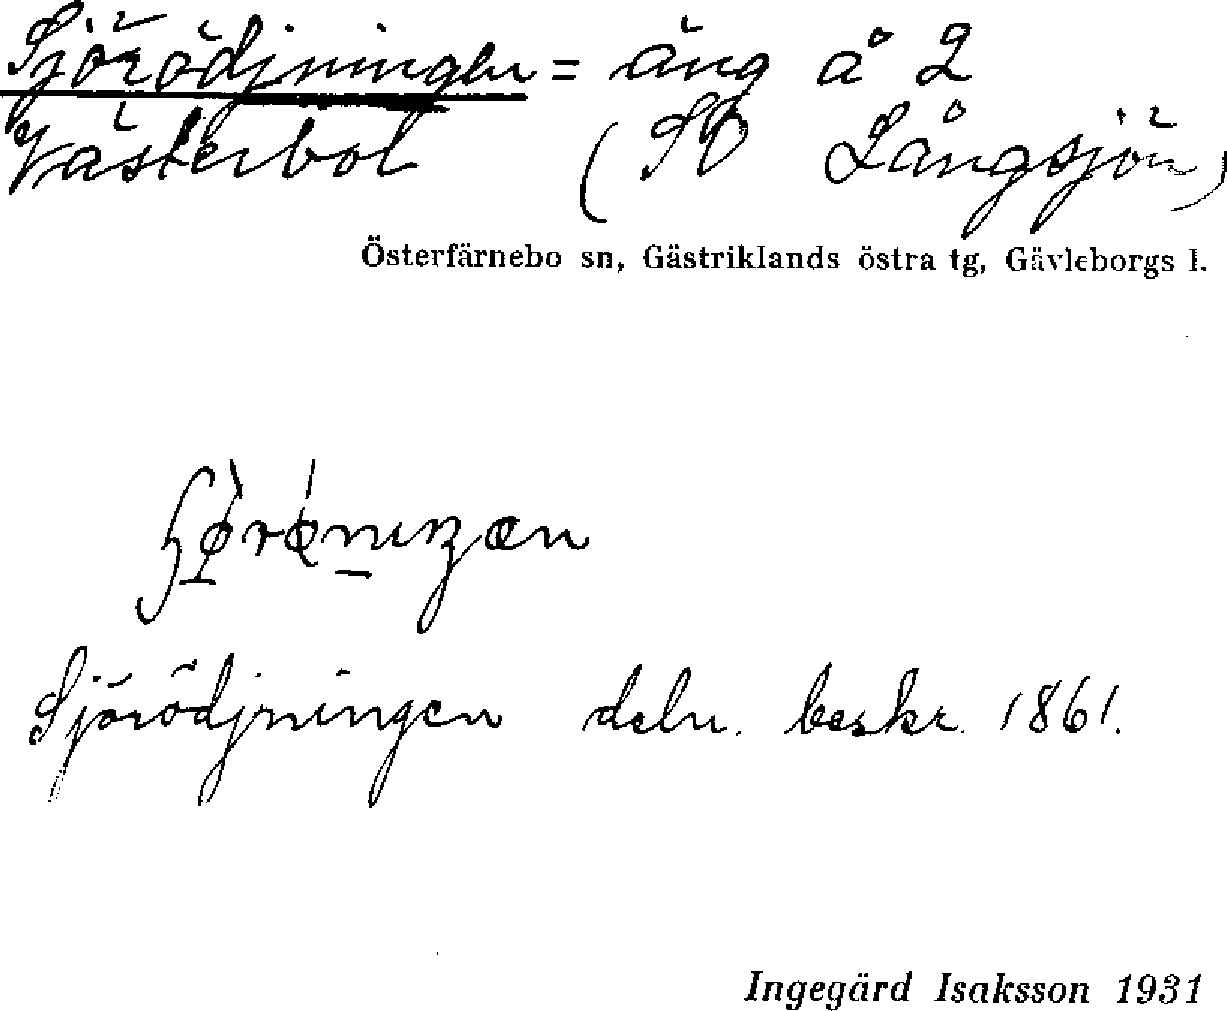 Sjörödjningen = äng å 2
Västerbol (SV Långsjön)
Österfärnebo sn, Gästriklands östra tg, Gävleborgs l.
Sjörödjningen deln. beskr. 1861.
Ingegärd Isaksson 1931